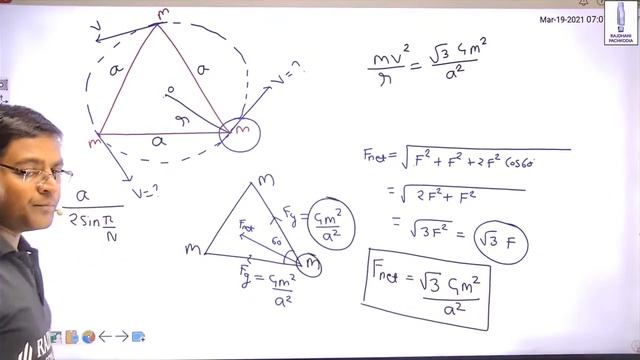 Mar-19-2021 07:0
RAJDHANI
PACHWODIA
m
V
a
a
o
r
V=?
m
m
a
V=?
a
2 sin π/N
mv²/r = √3 Gm²/a²
Fnet = √F² + F² + 2F² cos60
= √2F² + F²
= √3F² = √3 F
Fnet = √3 Gm²/a²
m
Fg = Gm²/a²
Fnet
60
m
m
Fg = Gm²/a²